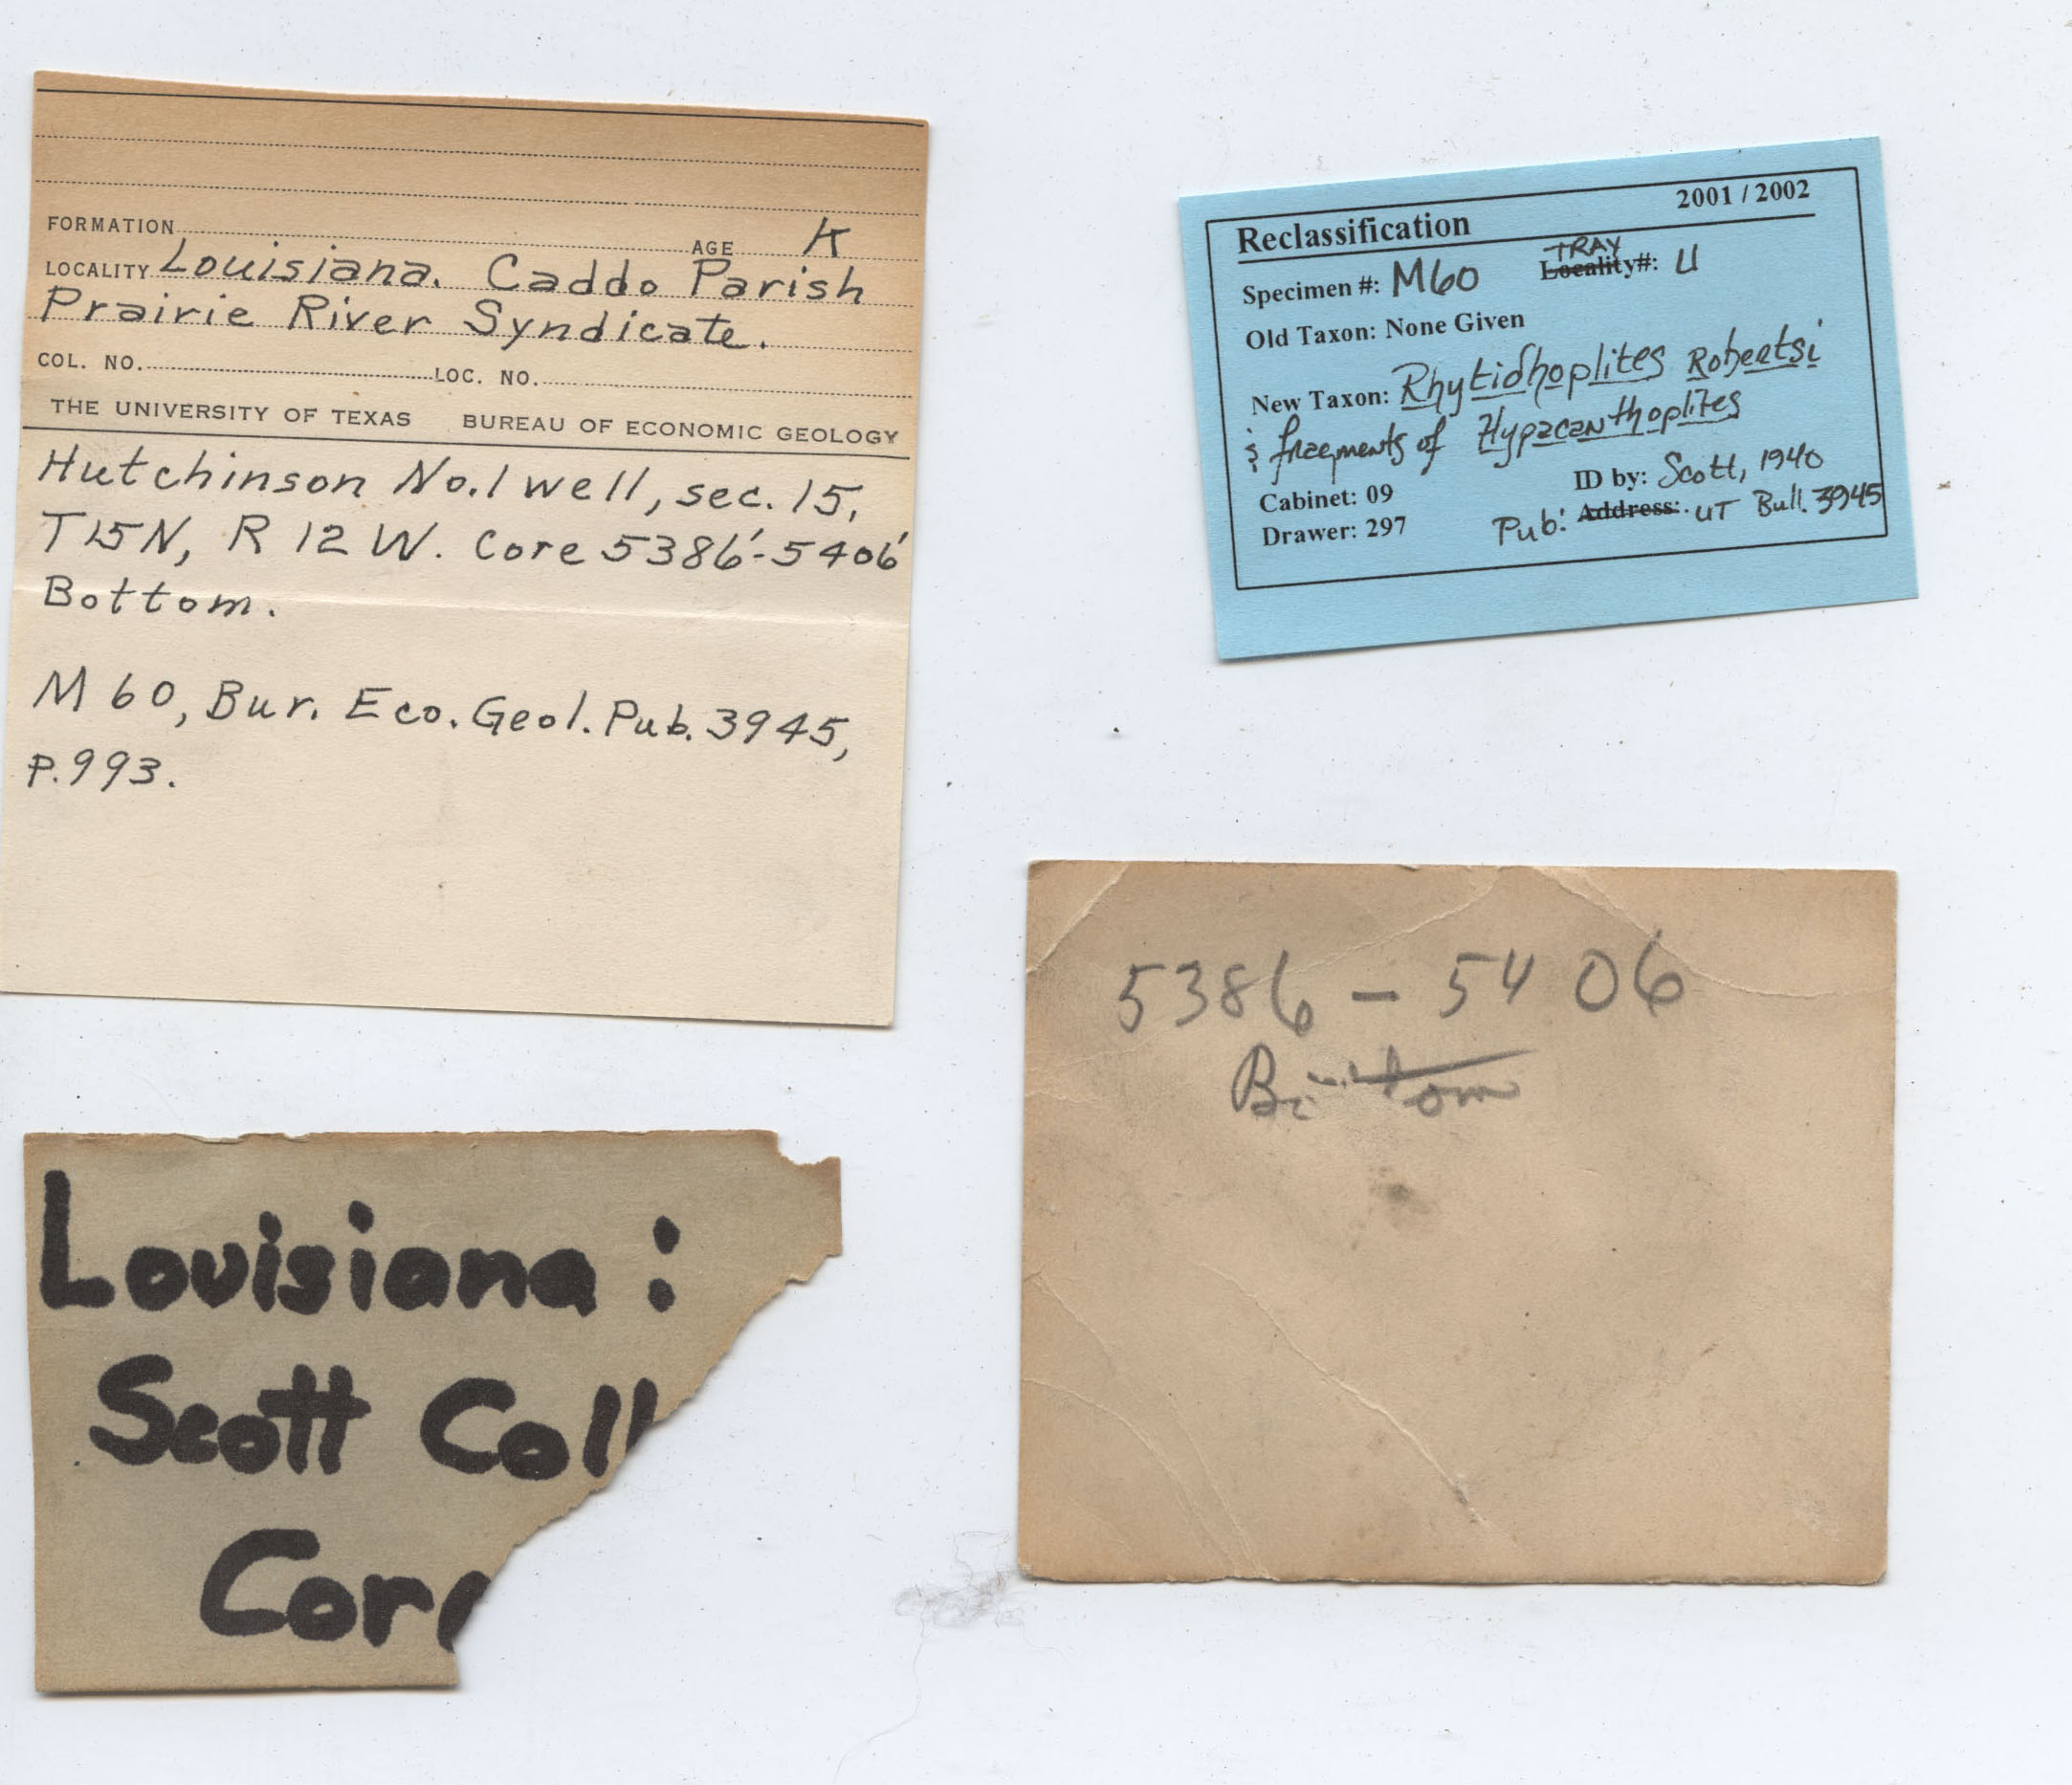 FORMATION AGE K
LOCALITY Louisiana. Caddo Parish
Prairie River Syndicate.
COL. NO. LOC. NO.
THE UNIVERSITY OF TEXAS BUREAU OF ECONOMIC GEOLOGY
Hutchinson No.1 well, sec. 15,
T15N, R 12 W. Core 5386'-5406'
Bottom.
M 60, Bur. Eco. Geol. Pub. 3945,
P. 993.
Reclassification 2001 / 2002
TRAY
Specimen #: M60 Locality#: U
Old Taxon: None Given
New Taxon: Rhytidhoplites Robertsi
& fragments of Hypacanthoplites
Cabinet: 09 ID by: Scott, 1940
Drawer: 297 Pub: Address: UT Bull. 3945
5386 - 5406
Bottom
Louisiana:
Scott Coll
Core